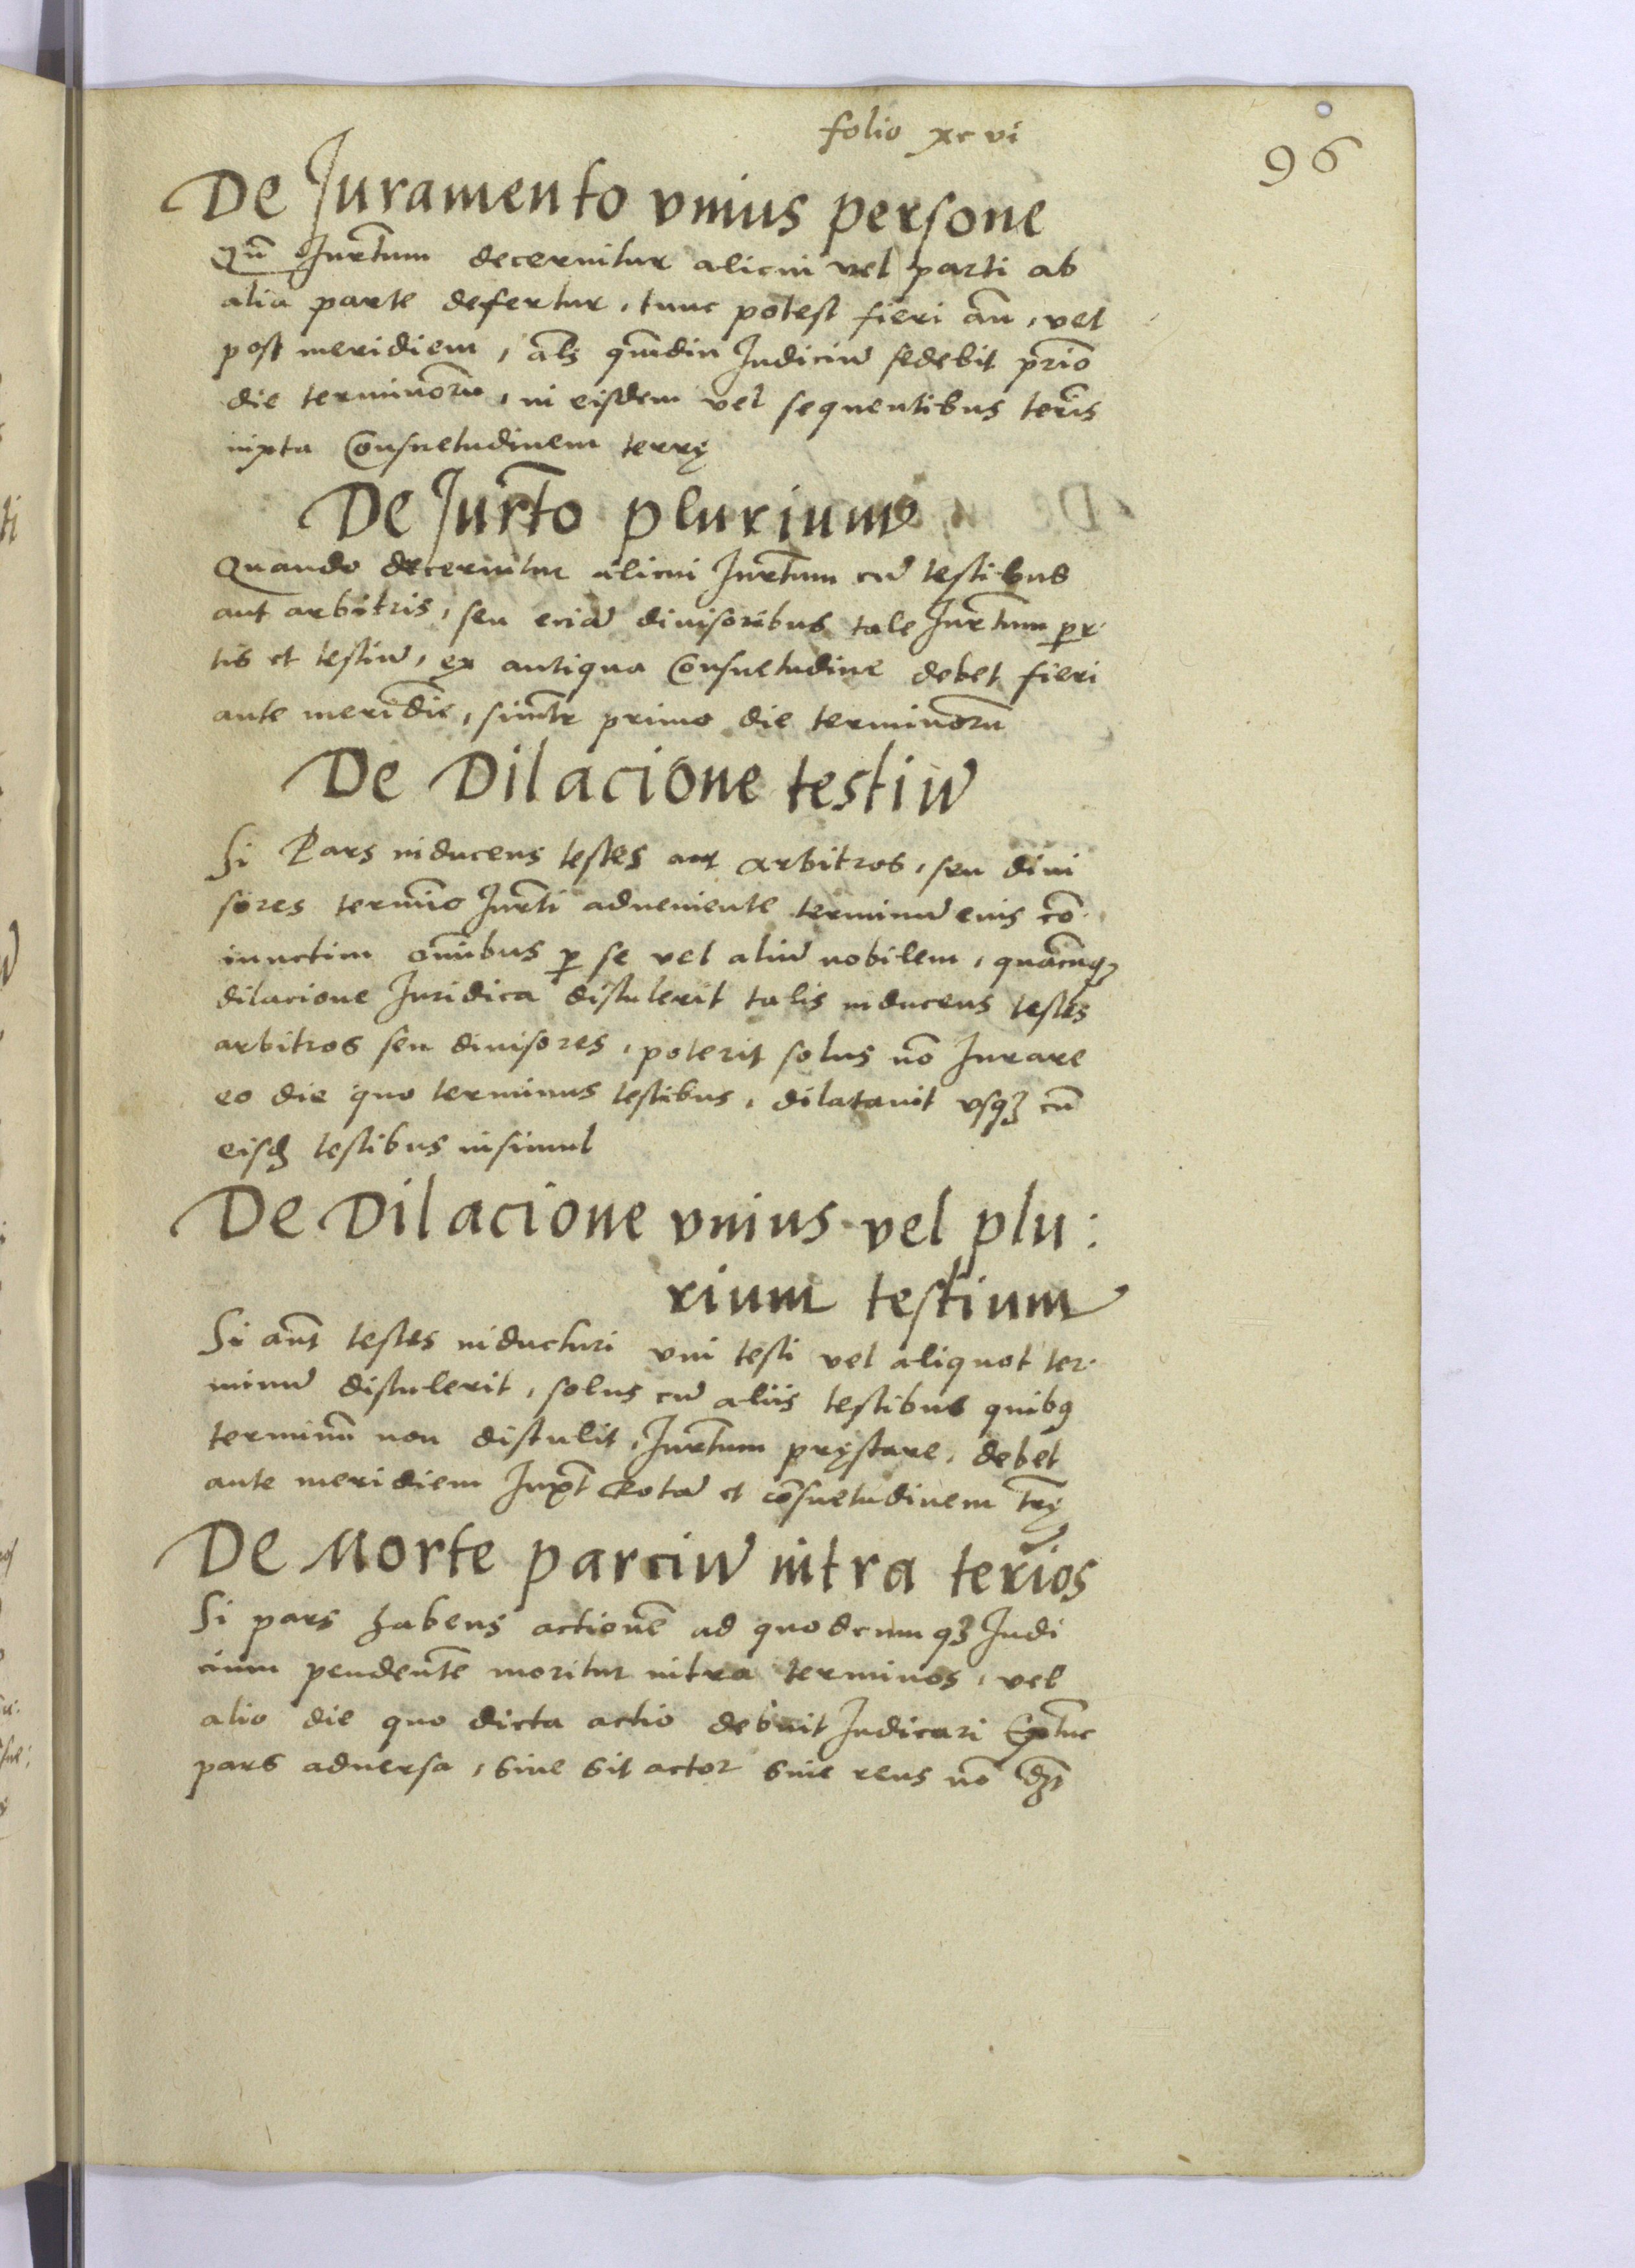 folio xcvi
96
De Juramento vnius persone
Qñ Jurt̃um decernitur alicui vel parti ab
alia parte defertur, tunc potest fieri añ, vel
post meridiem, als̃ qm̃diu Judiciũ sedebit prĩo
die terminorũ, in eisdem vel sequentibus terĩs
iuxta Consuetudinem terrę
De Jurt̃o plurium
Quando decernitur alicui Jurt̃um cũ testibus
aut arbitris, seu eciã diuisoribus tale Jurt̃um par-
tis et testiũ, ex antiqua Consuetudine debet fieri
ante meridiẽ, simlr̃ primo die terminorũ
De Dilacione testiũ
Si Pars inducens testes aut arbitros, seu diui
sores termĩo Jurt̃i adueniente terminũ eius cõ-
iunctim om̃ibus ꝑ se vel aliũ nobilem, quacũqꝫ
dilacione Juridica distulerit talis inducens testes
arbitros seu diuisores, poterit solus nõ Jurare
eo die quo terminus testibus, dilatauit vsqꝫ cũ
eisđ testibus insimul
De Dilacione vnius vel plu:
rium testium
Si aut̃ testes inducturi vni testi vel aliquot ter-
minũ distulerit, solus cũ aliis testibus quibꝫ
terminũ non distulit, Jurt̃um pręstare, debet
ante meridiem Juxt̃ Rotã et cõsuetudinem tr̃ę
De Morte parciũ intra terĩos
Si pars habens actionẽ ad quodcumqꝫ Judi
cium pendentẽ moritur intra terminos, vel
alio die quo dicta actio debuit Judicari Extũc
pars aduersa, siue sit actor siue reus nõ